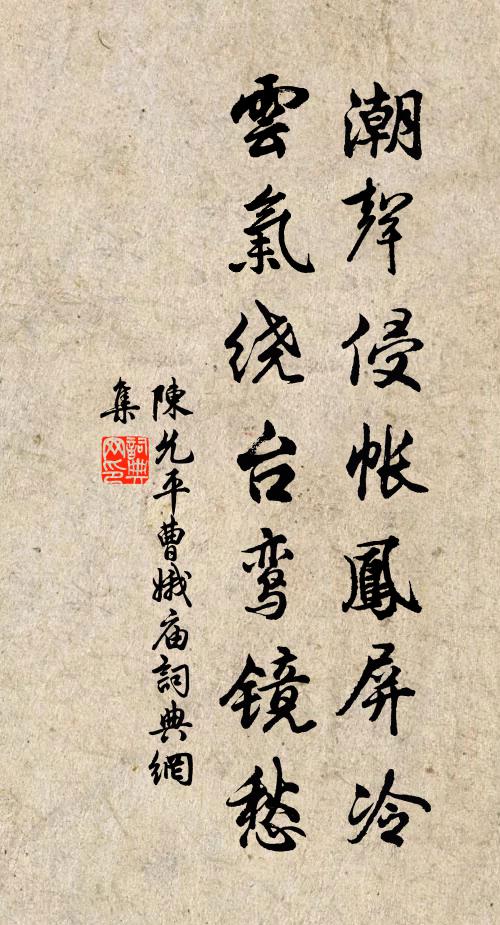 潮聲侵帐鳳屏冷
雲氣绕台鸾镜愁
陳允平曹娥庙詞典網
集
詞典网印